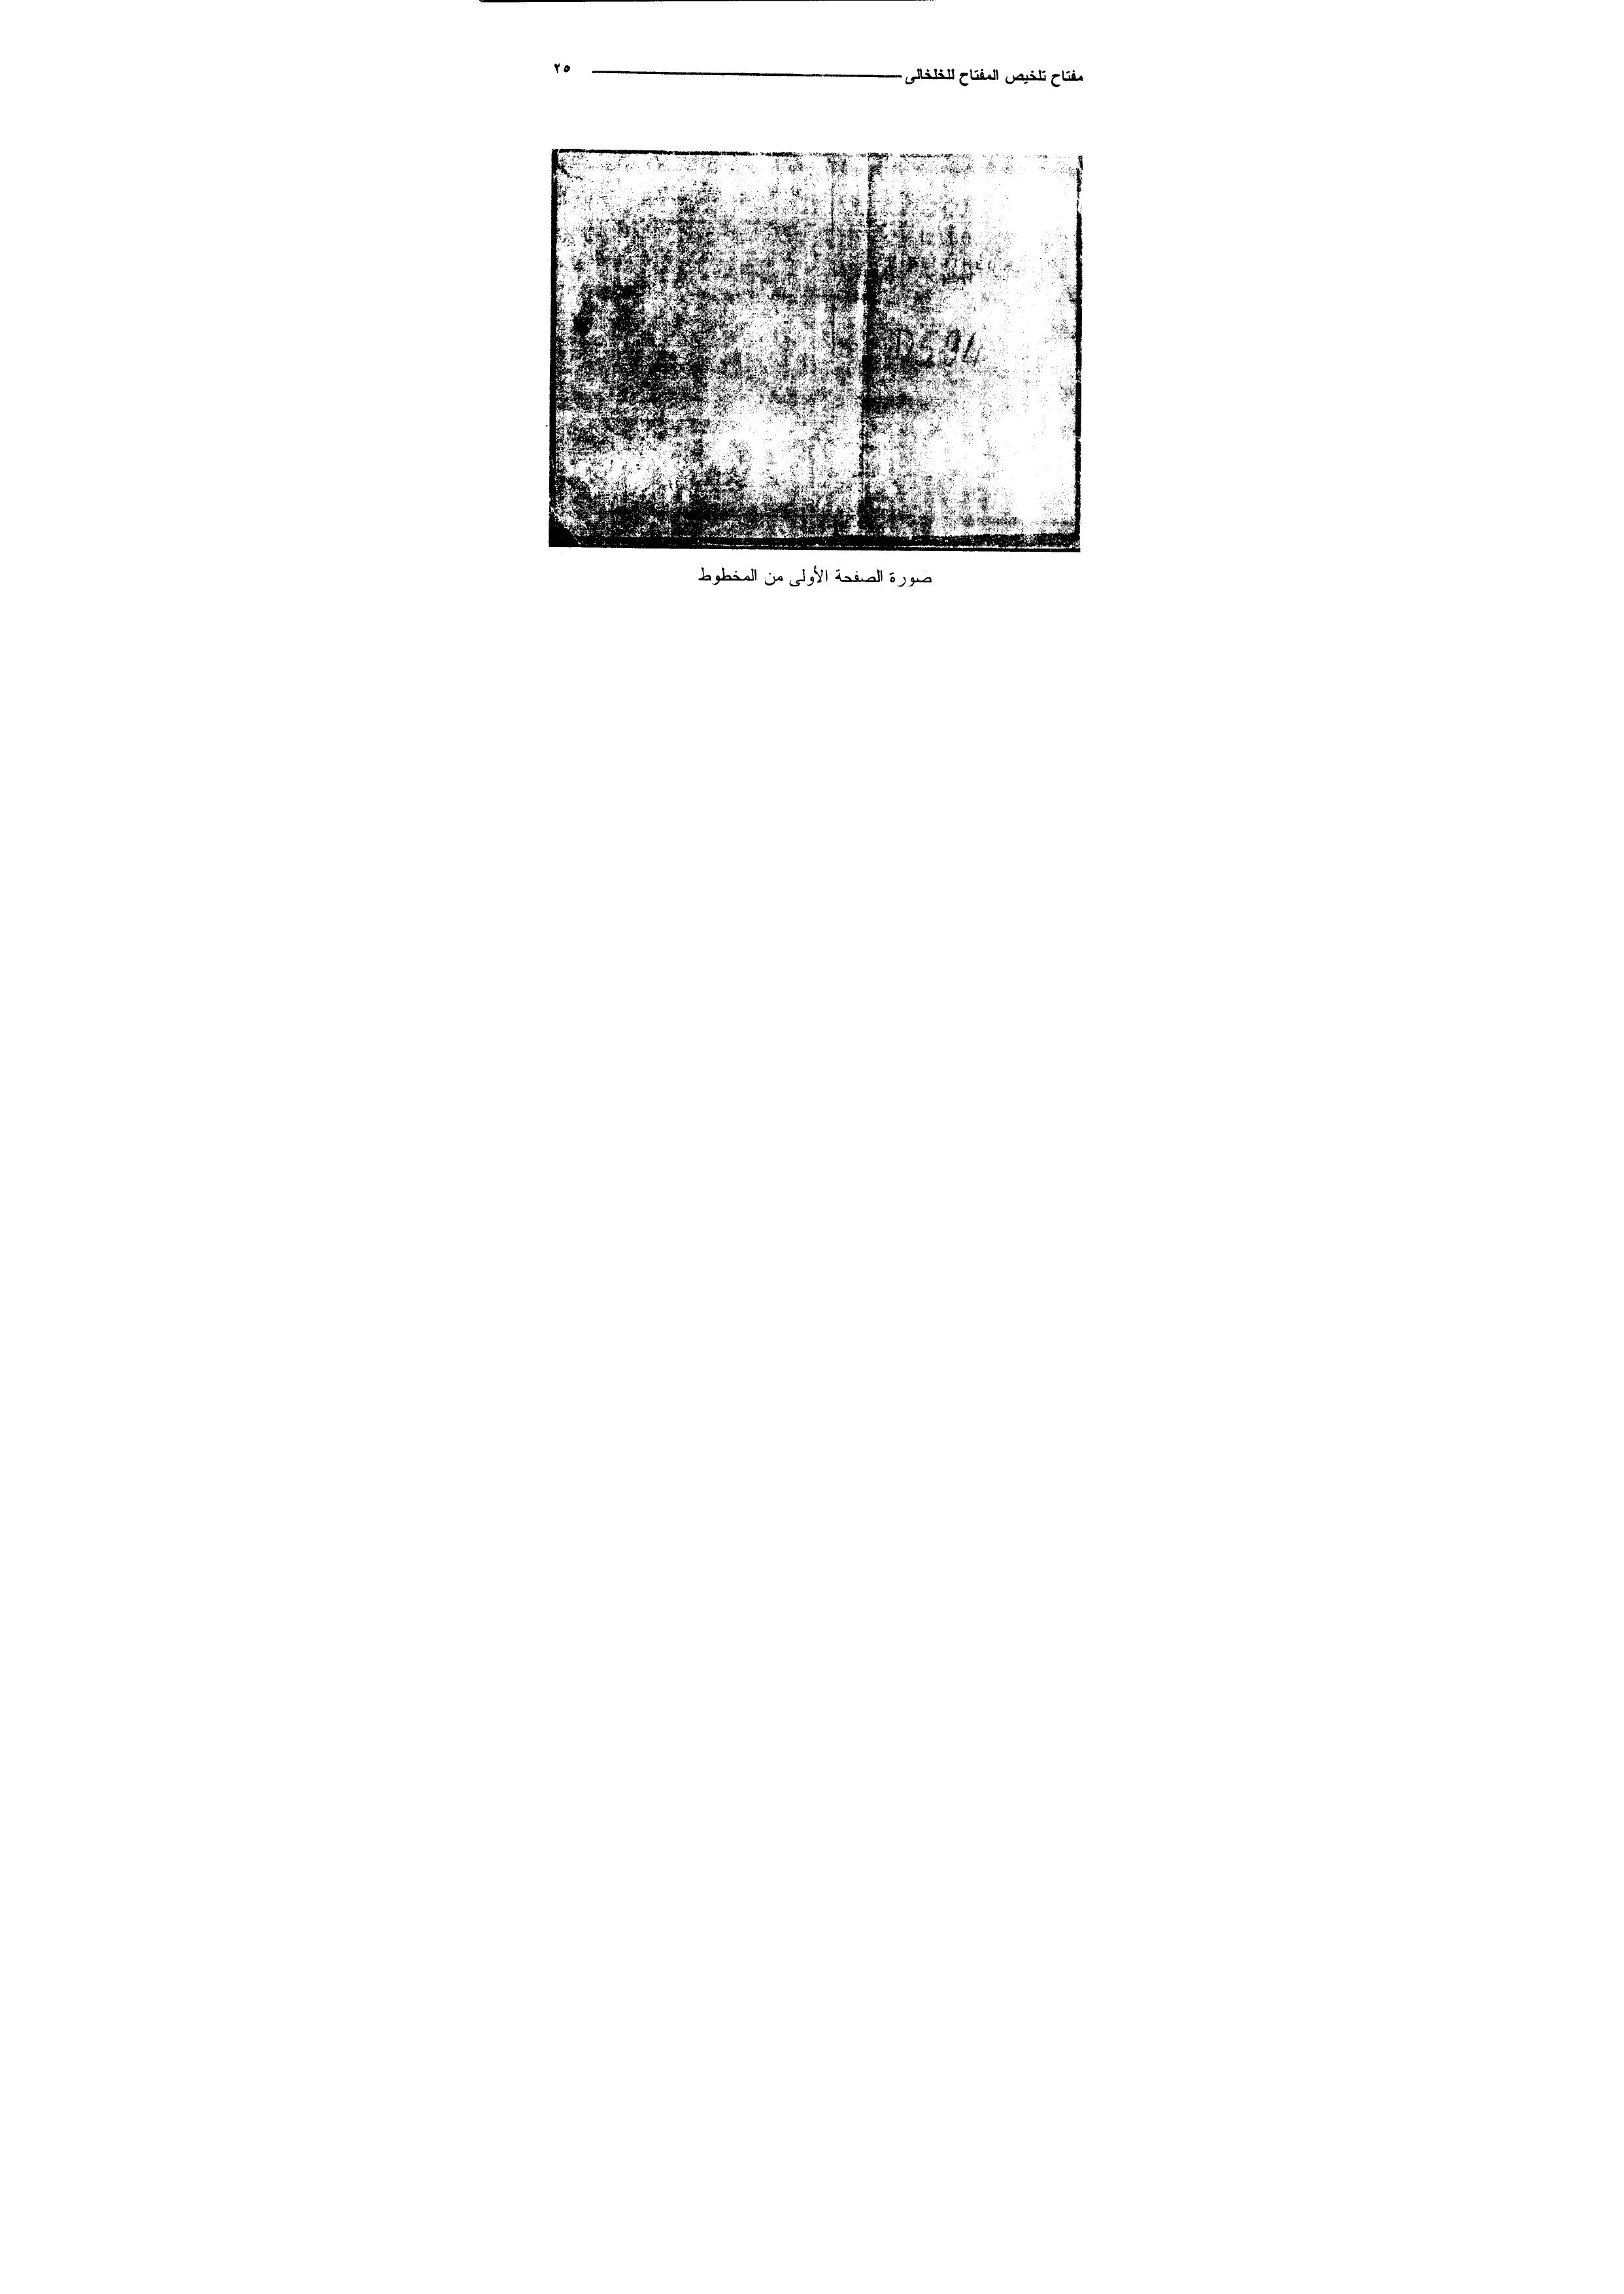 مفتاح تلخيص المفتاح للخلخالى ٢٥
D594
صورة الصفحة الأولى من المخطوط